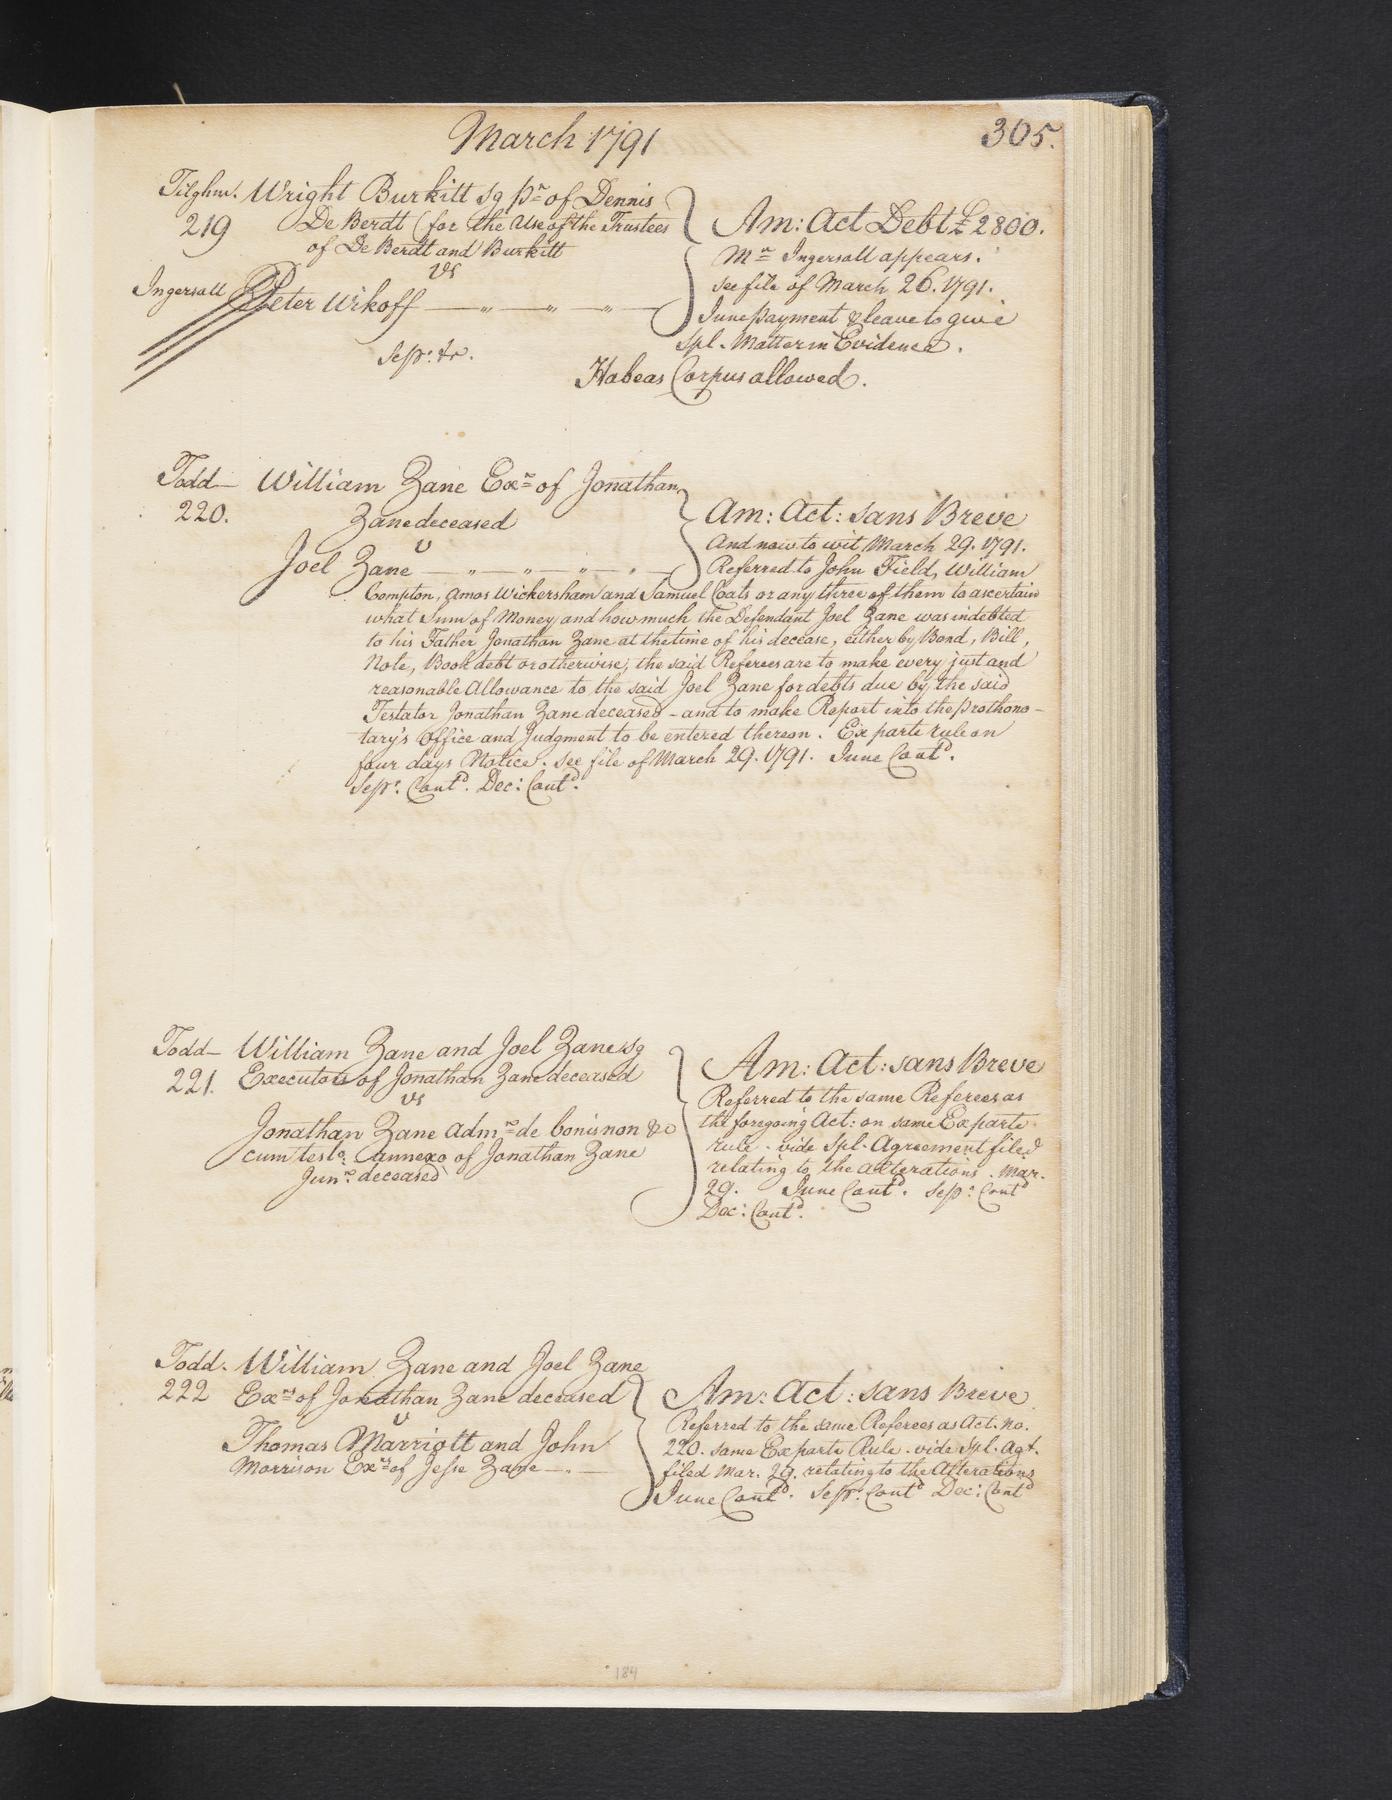 March 1791
305.
Tilghm. Wright Burkitt sg pr of Dennis
219 De Berdt (for the Use of the Trustees
of De Berdt and Burkitt
vs
Ingersoll Peter Wikoff
Sepr: &c.
Am: Act Debt £2800.
Mr Ingersoll appears.
see file of March 26. 1791.
June payment & leave to give
Spl. Matter in Evidence.
Habeas Corpus allowed.
Todd William Zane Exr of Jonathan
220. Zane deceased
v
Joel Zane
Am: Act: sans Breve
And now to wit March 29. 1791.
Referred to John Field, William
Compton, Amos Wickersham and Samuel Coats or any three of them to ascertain
what Sum of Money and how much the Defendant Joel Zane was indebted
to his Father Jonathan Zane at the time of his decease, either by Bond, Bill,
Note, Book debt or otherwise, the said Referees are to make every just and
reasonable Allowance to the said Joel Zane for debts due by the said
Testator Jonathan Zane deceased - and to make Report into the Prothono-
tary's Office and Judgment to be entered thereon. Ex parte rule on
four days Notice. see file of March 29. 1791. June Contd.
Sepr. Contd. Dec: Contd.
Todd William Zane and Joel Zane sg
221. Executors of Jonathan Zane deceased
vs
Jonathan Zane Admr de bonis non &c
cum testo: annexo of Jonathan Zane
Junr deceased
Am: Act: sans Breve
Referred to the same Referees as
the foregoing Act: on same Ex parte
rule. vide Spl. Agreement filed
relating to the alterations. Mar.
29. June Contd. Sepr: Contd
Dec: Contd.
Todd. William Zane and Joel Zane
222 Exrs of Jonathan Zane deceased
v
Thomas Marriott and John
Morrison Exrs of Jesse Zane
Am: Act: sans Breve
Referred to the same Referees as Act: No.
220. same Exparte Rule. vide Spl. Agt.
filed Mar. 29. relating to the Alterations
June Contd. Sepr: Contd Dec: Contd
184